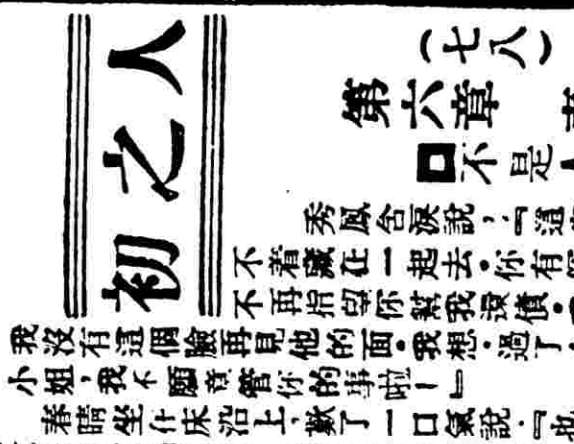 人之初
（七八）
第六章
口不是
秀鳳含淚說，『這
不着藏在一起去。你有
不再指望你幫我還債。
我沒有這個臉再見他的面。我想，過了，
小姐，我不願意管你的事啦！』
春晴坐在床沿上，歎了一口氣說：『